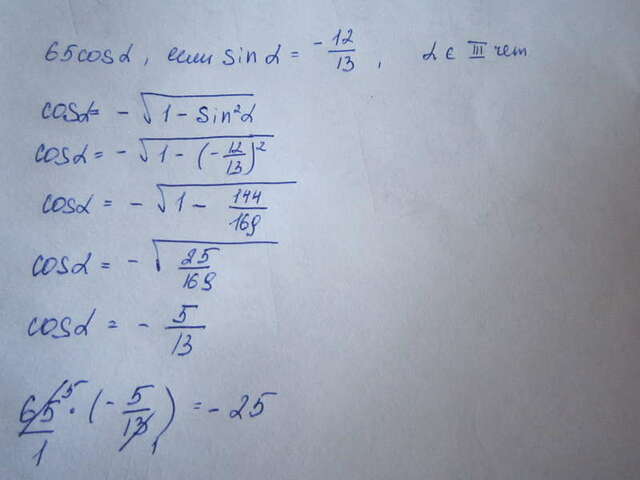 65cosα, если sin α = -12/13, α ∈ III чет
cosα = - √(1 - sin²α)
cosα = - √(1 - (-12/13)²)
cosα = - √(1 - 144/169)
cosα = - √(25/169)
cosα = - 5/13
65/1 5 · (- 5/13 1) = - 25